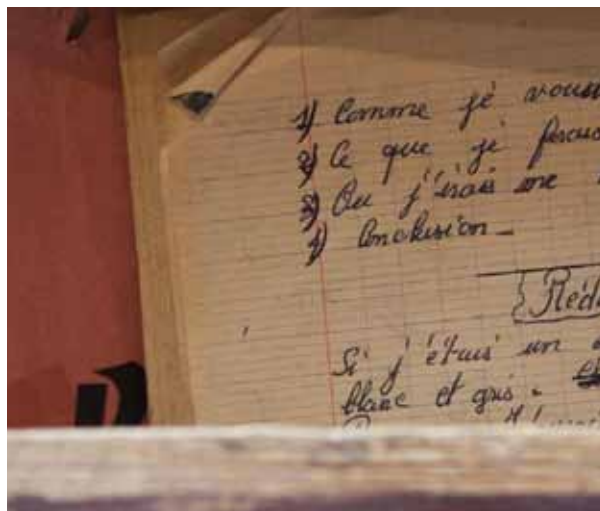 1) Comme je vous
2) Ce que je
3) Ou j'irais me
4) Conclusion -
Réda
Si j'étais un
blanc et gris.